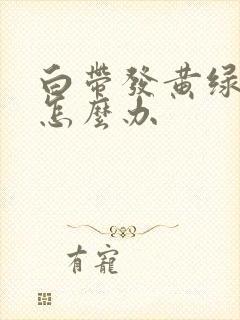 白帶發黃绿
怎麼办
有寵